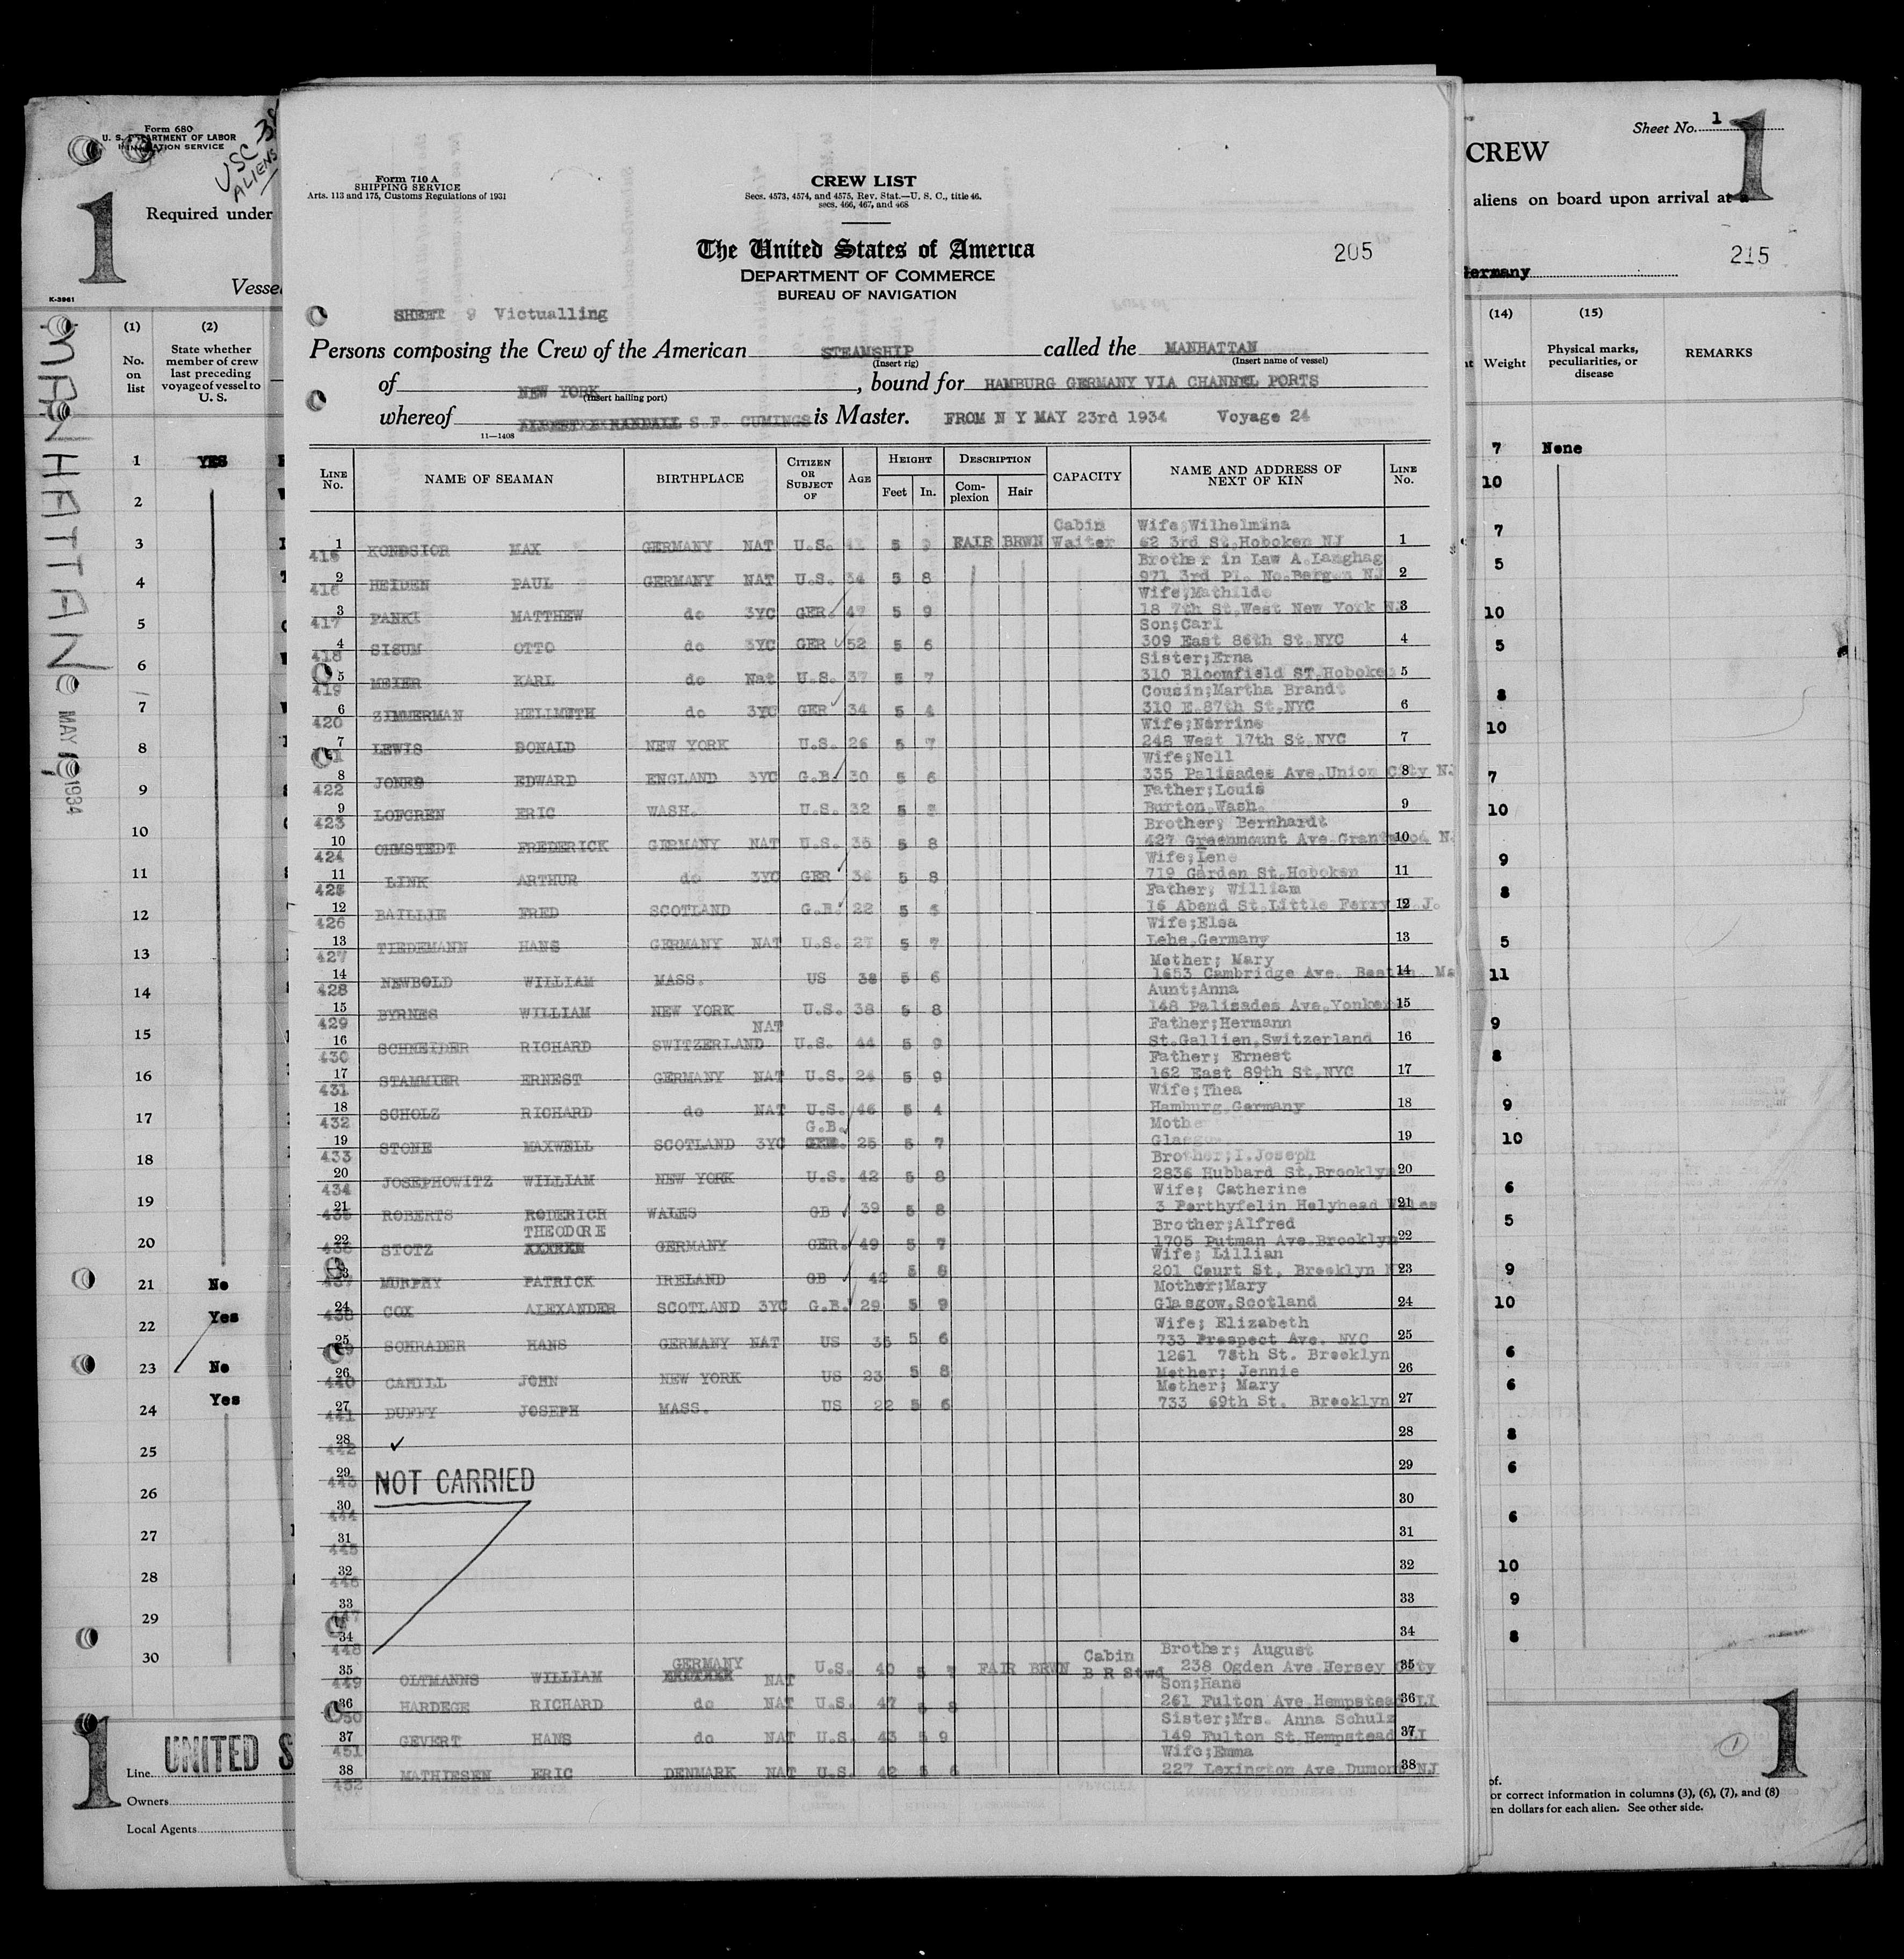 Form 680
U. S. DEPARTMENT OF LABOR
IMMIGRATION SERVICE
USC-38
ALIENS
1
Required under
Vessel
K-3961
(1) (2)
No. on list
State whether member of crew last preceding voyage of vessel to U. S.
MANHATTAN
MAY 1934
1 YES
2
3
4
5
6
7
8
9
10
11
12
13
14
15
16
17
18
19
20
21 No
22 Yes
23 No
24 Yes
25
26
27
28
29
30
1
UNITED S
Line
Owners
Local Agents
Form 710 A
SHIPPING SERVICE
Arts. 113 and 175, Customs Regulations of 1931
CREW LIST
Secs. 4573, 4574, and 4575, Rev. Stat.—U. S. C., title 46.
secs. 466, 467, and 468
The United States of America
DEPARTMENT OF COMMERCE
BUREAU OF NAVIGATION
205
SHEET 9 Victualling
Persons composing the Crew of the American STEAMSHIP called the MANHATTAN
(Insert rig) (Insert name of vessel)
of NEW YORK, bound for HAMBURG GERMANY VIA CHANNEL PORTS
(Insert hailing port)
whereof S.F. CUMINGS is Master. FROM N Y MAY 23rd 1934 Voyage 24
11—1408
LINE No. NAME OF SEAMAN BIRTHPLACE CITIZEN OR SUBJECT OF AGE HEIGHT Feet In. DESCRIPTION Complexion Hair CAPACITY NAME AND ADDRESS OF NEXT OF KIN LINE No.
Cabin Wife;Wilhelmina
1 415 KONDSIOR MAX GERMANY NAT U.S. 5 9 FAIR BRWN Waiter 62 3rd St.Hoboken NJ 1
Brother in Law A.Langhag
2 416 HEIDEN PAUL GERMANY NAT U.S. 34 5 8 971 3rd Pl. No.Bergen NJ 2
Wife;Mathilde
3 417 PANKI MATTHEW do 3YC GER. 47 5 9 18 7th St.West New York NJ 3
Son;Carl
4 418 SISUM OTTO do 3YC GER 52 5 6 309 East 86th St.NYC 4
Sister;Erna
5 419 MEIER KARL do Nat U.S. 37 5 7 310 Bloomfield ST.Hoboken 5
Cousin;Martha Brandt
6 420 ZIMMERMAN HELLMUTH do 3YC GER 34 5 4 310 E.87th St.NYC 6
Wife;Nerrine
7 LEWIS DONALD NEW YORK U.S. 26 5 7 248 West 17th St.NYC 7
Wife;Nell
8 422 JONES EDWARD ENGLAND 3YC G.B. 30 5 6 335 Palisades Ave.Union City NJ 8
Father;Louis
9 423 LOFGREN ERIC WASH. U.S. 32 5 Burton.Wash. 9
Brother; Bernhardt
10 424 OHMSTEDT FREDERICK GERMANY NAT U.S. 35 5 8 427 Greenmount Ave.Grantwood N. 10
Wife;Lene
11 425 LINK ARTHUR do 3YC GER 36 5 8 719 Garden St.Hoboken 11
Father; William
12 426 BAILLIE FRED SCOTLAND G.B. 22 5 5 16 Abend St.Little Ferry N.J. 12
Wife;Elsa
13 427 TIEDEMANN HANS GERMANY NAT U.S. 27 5 7 Lehe.Germany 13
Mother; Mary
14 428 NEWBOLD WILLIAM MASS. US 38 5 6 1653 Cambridge Ave. Boston. Ma 14
Aunt;Anna
15 429 BYRNES WILLIAM NEW YORK U.S. 38 5 8 148 Palisades Ave.Yonkers 15
NAT Father;Hermann
16 430 SCHNEIDER RICHARD SWITZERLAND U.S. 44 5 9 St.Gallien.Switzerland 16
Father; Ernest
17 431 STAMMIER ERNEST GERMANY NAT U.S. 24 5 9 162 East 89th St.NYC 17
Wife;Thea
18 432 SCHOLZ RICHARD do NAT U.S. 46 5 4 Hamburg.Germany 18
G.B. Mother
19 433 STONE MAXWELL SCOTLAND 3YC GER. 25 5 7 Glasgow 19
Brother;I.Joseph
20 434 JOSEPHOWITZ WILLIAM NEW YORK U.S. 42 5 8 2836 Hubbard St.Brooklyn 20
Wife; Catherine
21 435 ROBERTS RODERICH WALES GB 39 5 8 3 Porthyfelin Holyhead Wales 21
THEODORE Brother;Alfred
22 436 STOTZ GERMANY GER. 49 5 7 1705 Putman Ave.Brooklyn 22
Wife; Lillian
23 437 MURPHY PATRICK IRELAND GB 42 5 8 201 Court St. Brooklyn 23
Mother;Mary
24 438 COX ALEXANDER SCOTLAND 3YC G.B. 29 5 9 Glasgow.Scotland 24
Wife; Elizabeth
25 SCHRADER HANS GERMANY NAT US 35 5 6 733 Prospect Ave. NYC 25
1261 78th St. Brooklyn
26 440 CAHILL JOHN NEW YORK US 23 5 8 Mother; Jennie 26
Mother; Mary
27 441 DUFFY JOSEPH MASS. US 22 5 6 733 69th St. Brooklyn 27
28 442 ✓ 28
29 443 NOT CARRIED 29
30 444 30
31 445 31
32 446 32
33 447 33
34 448 34
GERMANY Cabin Brother; August
35 449 OLTMANNS WILLIAM NAT U.S. 40 5 7 FAIR BRWN B R Stwd 238 Ogden Ave Hersey City 35
Son;Hans
36 HARDEGE RICHARD do NAT U.S. 47 5 8 261 Fulton Ave Hempstead LI 36
Sister;Mrs. Anna Schulz
37 451 GEVERT HANS do NAT U.S. 43 5 9 149 Fulton St.Hempstead LI 37
Wife;Emma
38 452 MATHIESEN ERIC DENMARK NAT U.S. 42 5 6 227 Lexington Ave Dumont NJ 38
Sheet No. 1
1
CREW
aliens on board upon arrival at a
Germany
215
(14) (15)
Weight Physical marks, peculiarities, or disease REMARKS
7 None
10
7
5
10
5
8
10
7
10
9
8
5
11
9
8
9
10
6
5
9
10
6
6
8
6
6
10
9
8
1
1
of.
or correct information in columns (3), (6), (7), and (8)
en dollars for each alien. See other side.